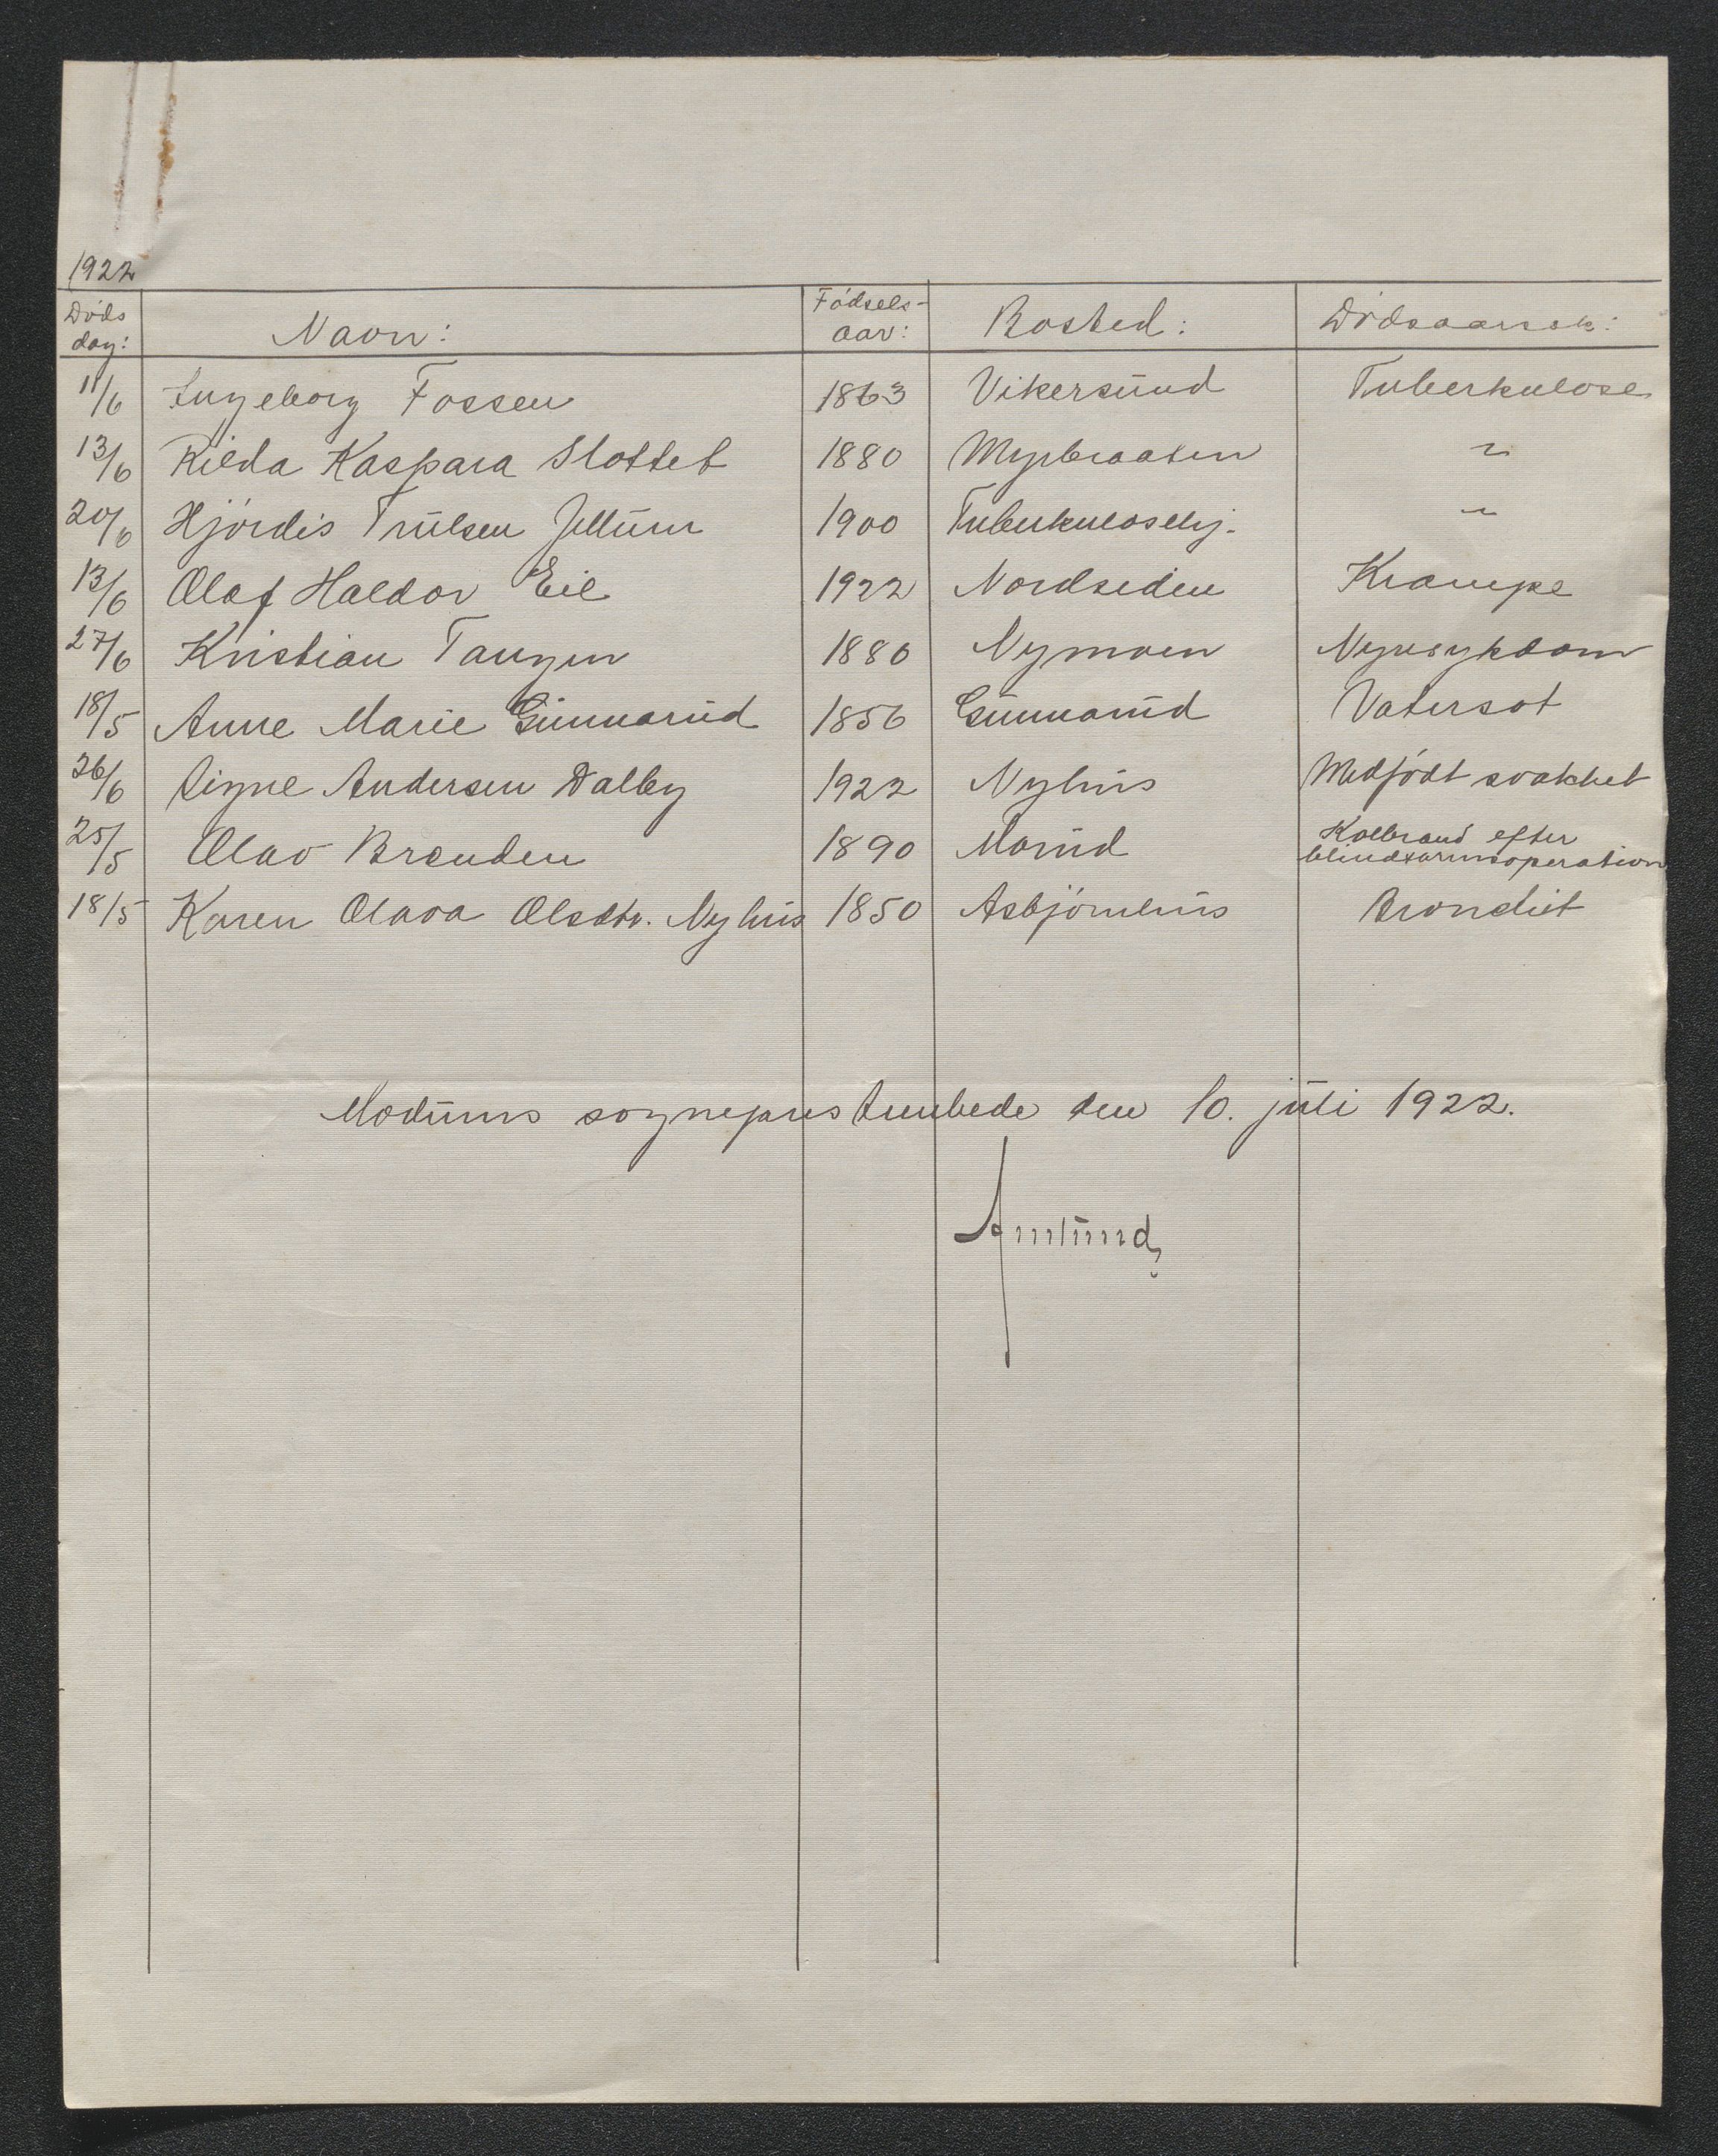 1922
Döds Födsels-
dag: Navn: aar: Bosted: Dödsaarsak:
11/6 Ingeborg Fossen 1863 Vikersund Tuberkulose
13/6 Kilda Kaspara Slottet 1880 Myrbraaten "
20/6 Hjördis Trulsen Jellum 1900 Tuberkulosehj. "
13/6 Olaf Haldor Eil 1922 Nordsiden Krampe
27/6 Kristian Tangen 1880 Nymoen Nyresykdom
18/5 Anne Marie Gunnarud 1856 Gunnarud Vatersot
26/6 Signe Andersen Dalby 1922 Nyhus Medfödt svakhet
25/5 Olav Brenden 1890 Morud Kolbrand efter
blindtarmsoperation
18/5 Karen Olava Olsdtr. Nyhus 1850 Asbjörnhus Bronchit
Modums sogneprestembede den 10. juli 1922.